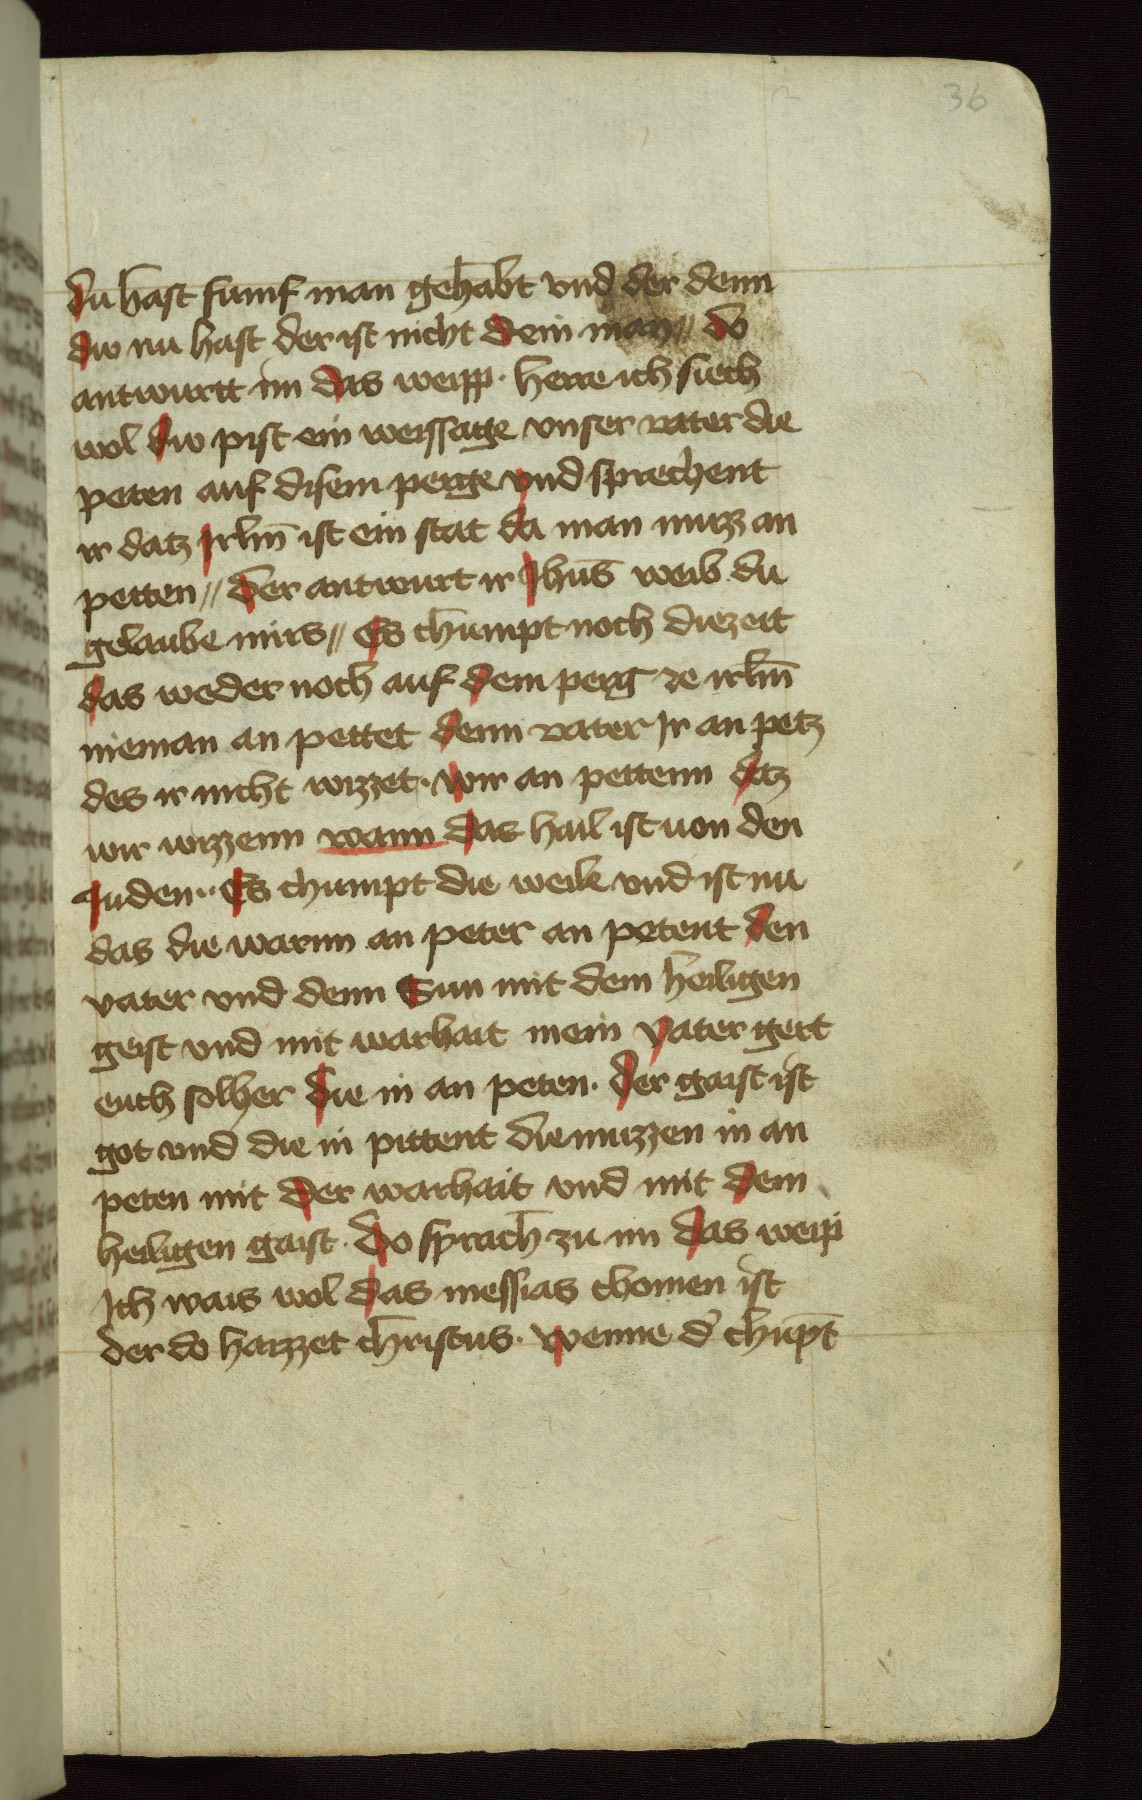 36
du hast fumf man gehabt vnd der denn
dw nu hast der ist nicht dein man // do
antwurtt im das weipp · herre ich siech
wol dw pist ein weissage vnser vater die
peten auf disem perge vnd sprechent
ir datz Irlm̄ ist ein stat da man muzz an
petten // der antwurt ir Jhūs weib du
gelaube mirs // Es chumpt noch die zeit
das weder noch auf dem perg ze irlm̄
nieman an pettet denn vater Ir an petz
des ir nicht wizzet · wir an pettenn daz
wir wizzenn wann das hail ist von den
Juden · Es chumpt die weile vnd ist nu
das die warnn an peter an petent den
vater vnd denn Sun mit dem heiligen
geist vnd mit warhait mein vater gert
euch solher die in an peten · der gaist ist
got vnd die in pittent die muzzen in an
peten mit der warhait vnd mit dem
heiligen gaist · do sprach zu im das weip
Ich wais wol das messias chomen ist
der do hazzet christus · wenne d' chūpt